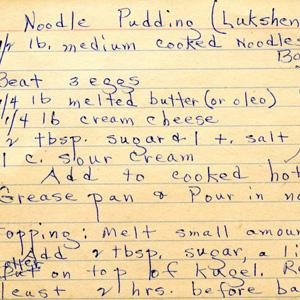 Noodle Pudding (Lukshen
1/2 lb. medium cooked noodles
Beat 3 eggs
1/4 lb melted butter (or oleo)
1/4 lb cream cheese
2 tbsp. sugar & 1 t. salt
1 c. sour cream
Add to cooked hot
Grease pan & Pour in no
opping: Melt small amoun
Add 2 tbsp. sugar, a li
Put on top of kugel. R
least 2 hrs. before ba